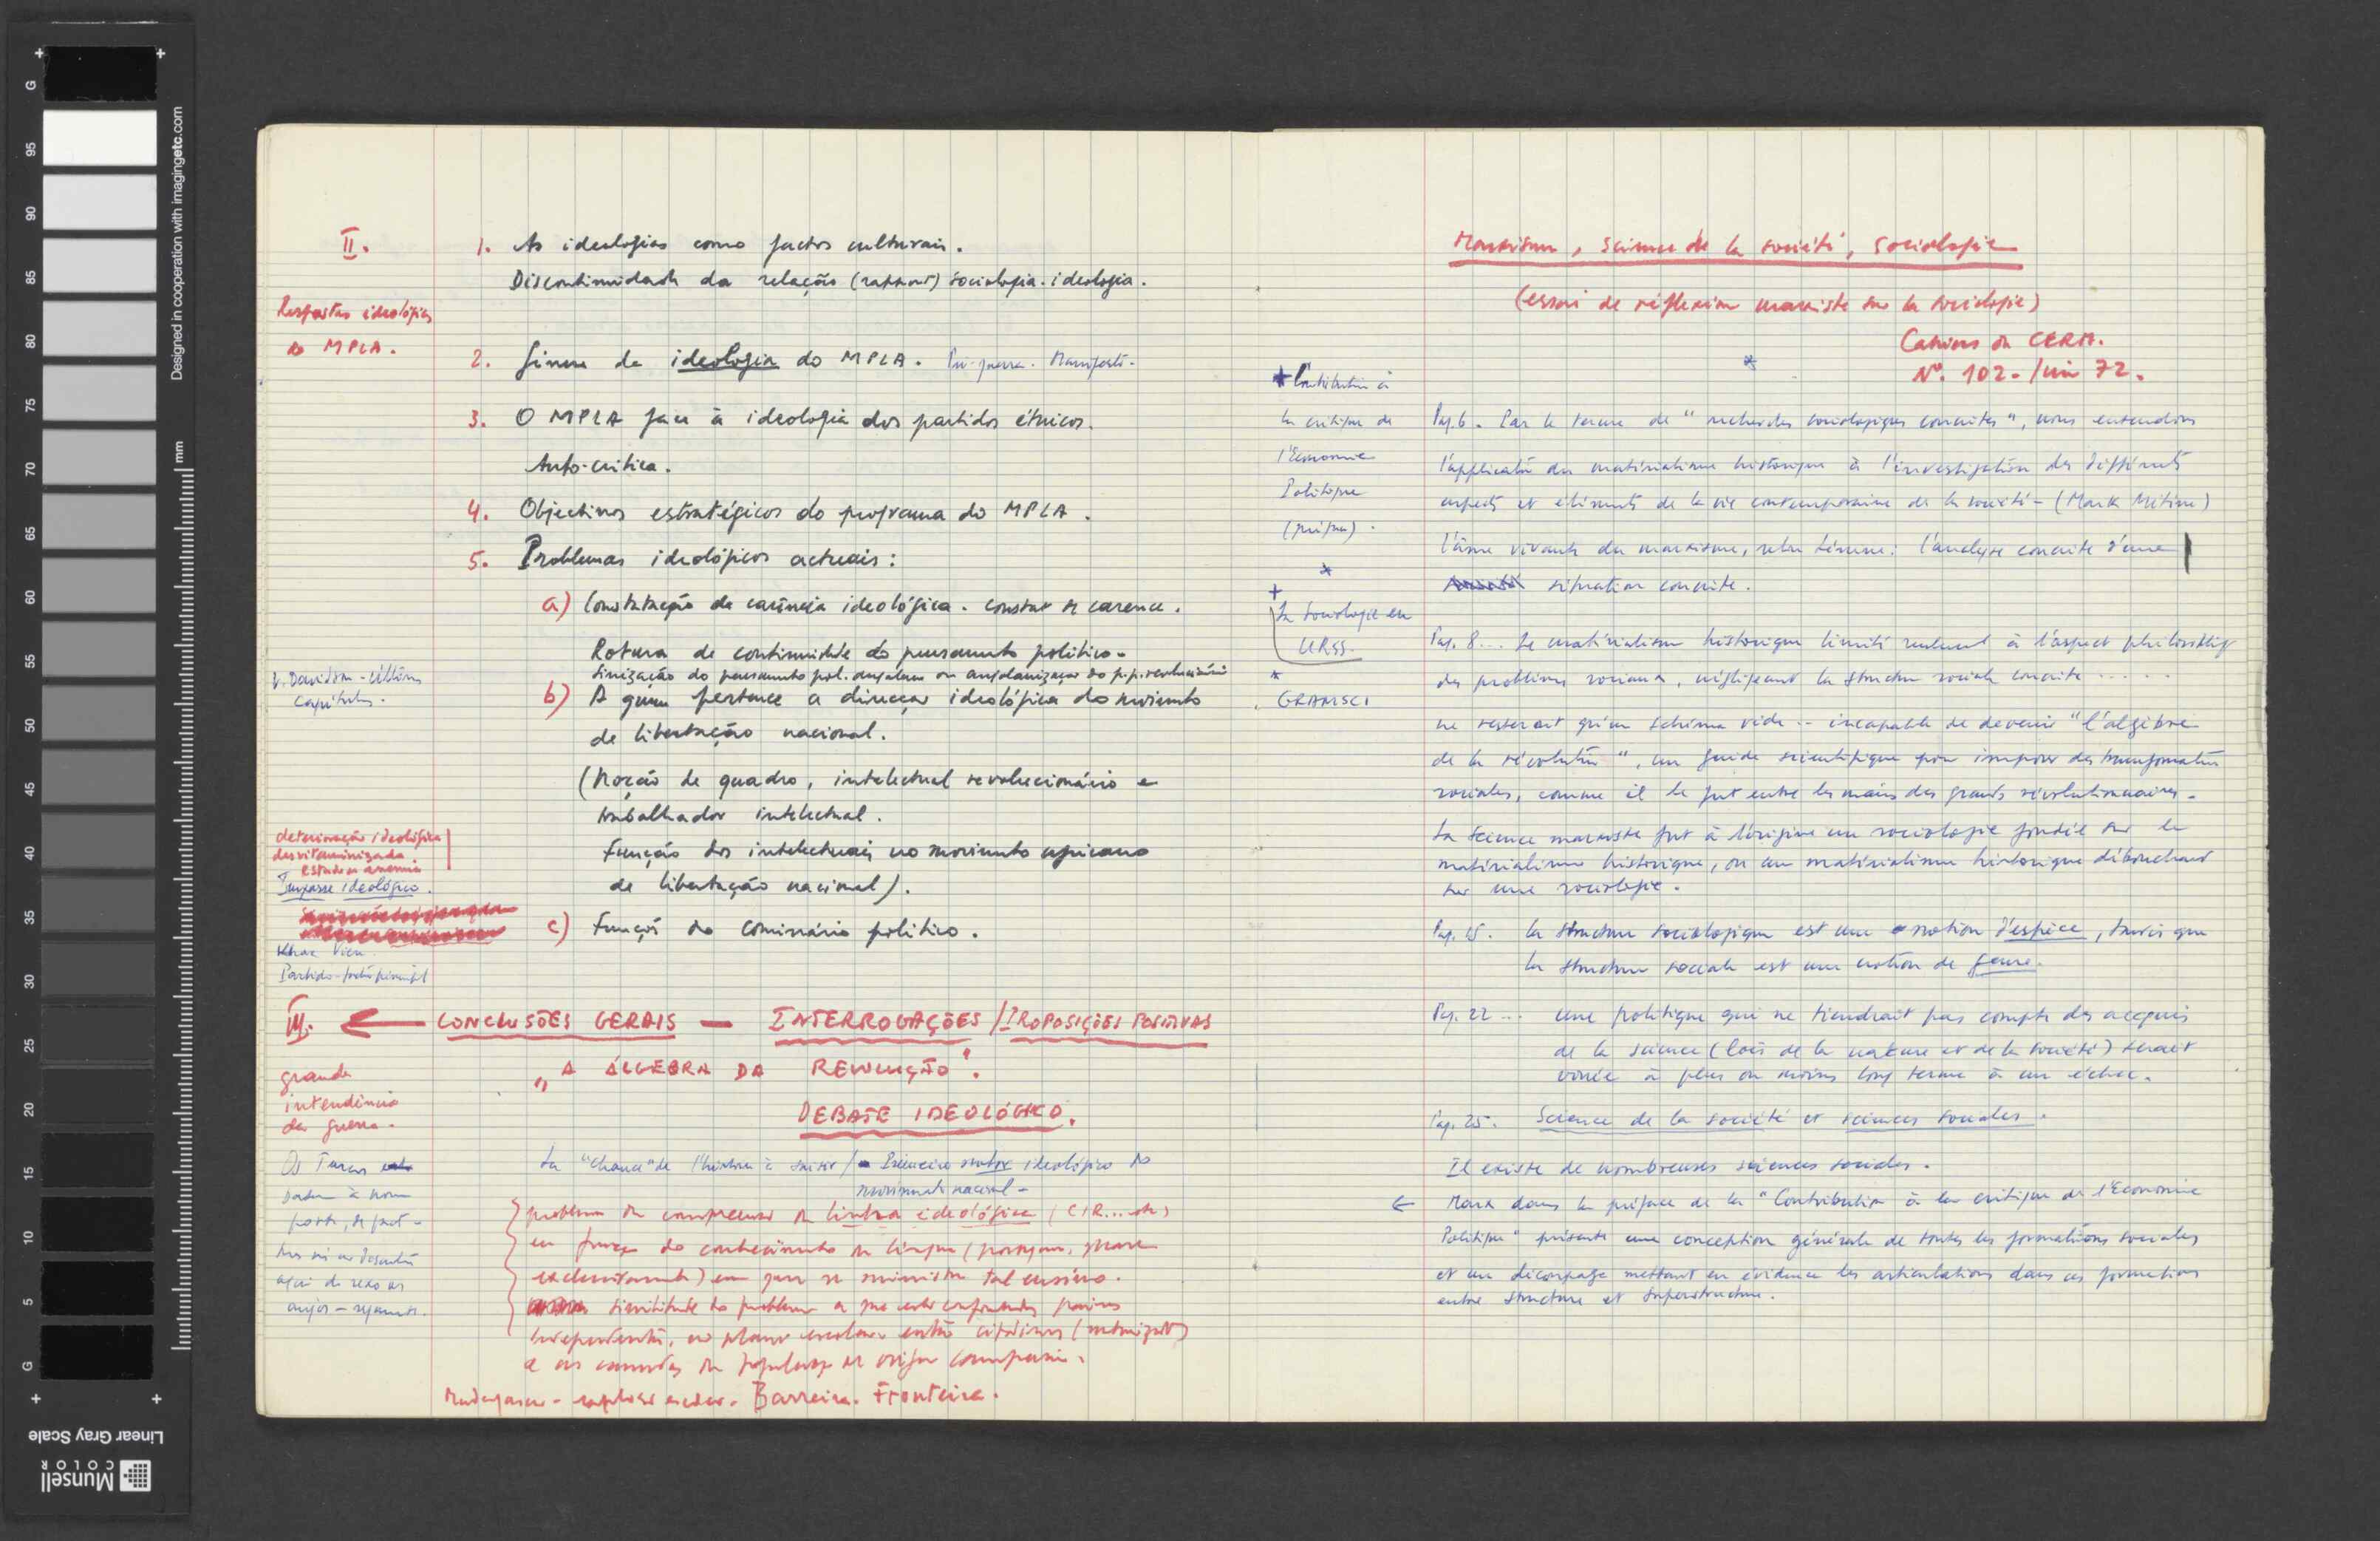 II.
Respostas ideológicas
do MPLA.
1. As ideologias como factos culturais.
Discontinuidade da relação (rapport) sociologia-ideologia.
2. Génese da ideologia do MPLA. Pré-guerra. Manifesto.
3. O MPLA face à ideologia dos partidos étnicos.
Auto-crítica.
4. Objectivos estratégicos do programa do MPLA.
5. Problemas ideológicos actuais:
a) Constatação da carência ideológica. constat de carence.
Rotura de continuidade do pensamento político.
do pensamento pol. angolano ou angolanização do p.p. revolucionário
b) A quem pertence a direcção ideológica do movimento
de libertação nacional.
(Noção de quadro, intelectual revolucionário e
trabalhador intelectual.
Função dos intelectuais no movimento africano
de libertação nacional).
c) Função do comissário político.
v. Davidson - últimos
capítulos.
ideológica
desvitaminizada
estado de anemia
Impasse ideológico.
Khac Vien
III. ← CONCLUSÕES GERAIS — INTERROGAÇÕES / PROPOSIÇÕES POSITIVAS
"A ÁLGEBRA DA REVOLUÇÃO".
DEBATE IDEOLÓGICO.
grande
intendência
da guerra.
Os Turcos
à nossa
porta, de facto
aqui do sexo dos
anjos -
La "chance" de l'histoire à saisir / Primeiro ideológico do
movimento nacional -
problema da compreensão da ideológica (CIR...
em função do conhecimento da língua (portuguesa, quase
exclusivamente) em que se ministra tal ensino.
similitude do problema a que estão confrontados países
independentes, no plano escolar entre citadinos
e as camadas da população de origem camponesa.
Madagascar - Barreira. Fronteira.
Marxisme, science de la société, sociologie
(essai de réflexion marxiste sur la sociologie)
Cahiers du CERM.
Nº. 102 - 72.
*
+ Contribution à
la critique de
l'Economie
Politique
(préface).
*
+
La Sociologie en
URSS.
*
GRAMSCI
Pag. 6. Par le terme de "recherches sociologiques concrètes", nous entendons
l'application du matérialisme historique à l'investigation des différents
aspects et éléments de la vie contemporaine de la société - (Mark Mitine)
l'âme vivante du marxisme, selon Lénine: l'analyse concrète d'une
situation concrète.
Pag. 8... Le matérialisme historique limité seulement à l'aspect philosophique
des problèmes sociaux, négligeant la structure sociale concrète ......
ne serait qu'un schéma vide... incapable de devenir "l'algèbre
de la révolution", un guide scientifique pour imposer des transformations
sociales, comme il le fut entre les mains des grands révolutionnaires.
La science marxiste fut à l'origine une sociologie fondée sur le
matérialisme historique, ou un matérialisme historique débouchant
sur une sociologie.
Pag. 15. la structure sociologique est une notion d'espèce, tandis que
la structure sociale est une notion de genre.
Pag. 22 ... une politique qui ne tiendrait pas compte des acquis
de la science (lois de la nature et de la société) serait
vouée à plus ou moins long terme à un échec.
Pag. 25. Science de la société et sciences sociales.
Il existe de nombreuses sciences sociales.
← Marx dans la préface de la "Contribution à la critique de l'Economie
Politique" présente une conception générale de toutes les formations sociales
et un découpage mettant en évidence les articulations dans ces formations
entre structure et superstructure.
Designed in cooperation with imagingetc.com
mm
G 95 90 85 80 75 70 65 60 55 50 45 40 35 30 25 20 15 10 5 G
Linear Gray Scale
Munsell
COLOR